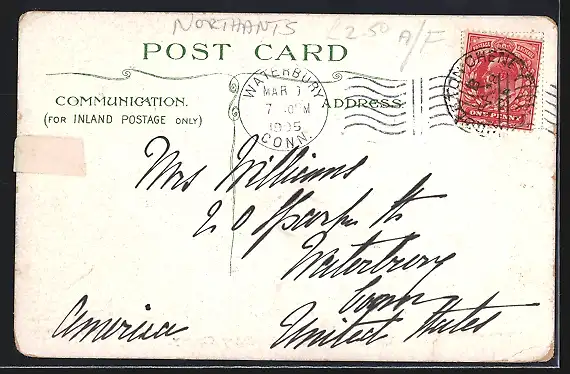 NORTHANTS £2.50 A/F
POST CARD
COMMUNICATION.
(FOR INLAND POSTAGE ONLY)
ADDRESS
WATERBURY
MAR
7
1905
CONN.
ONE PENNY
Mrs Williams
20 Park St
Waterbury
Conn
America United States